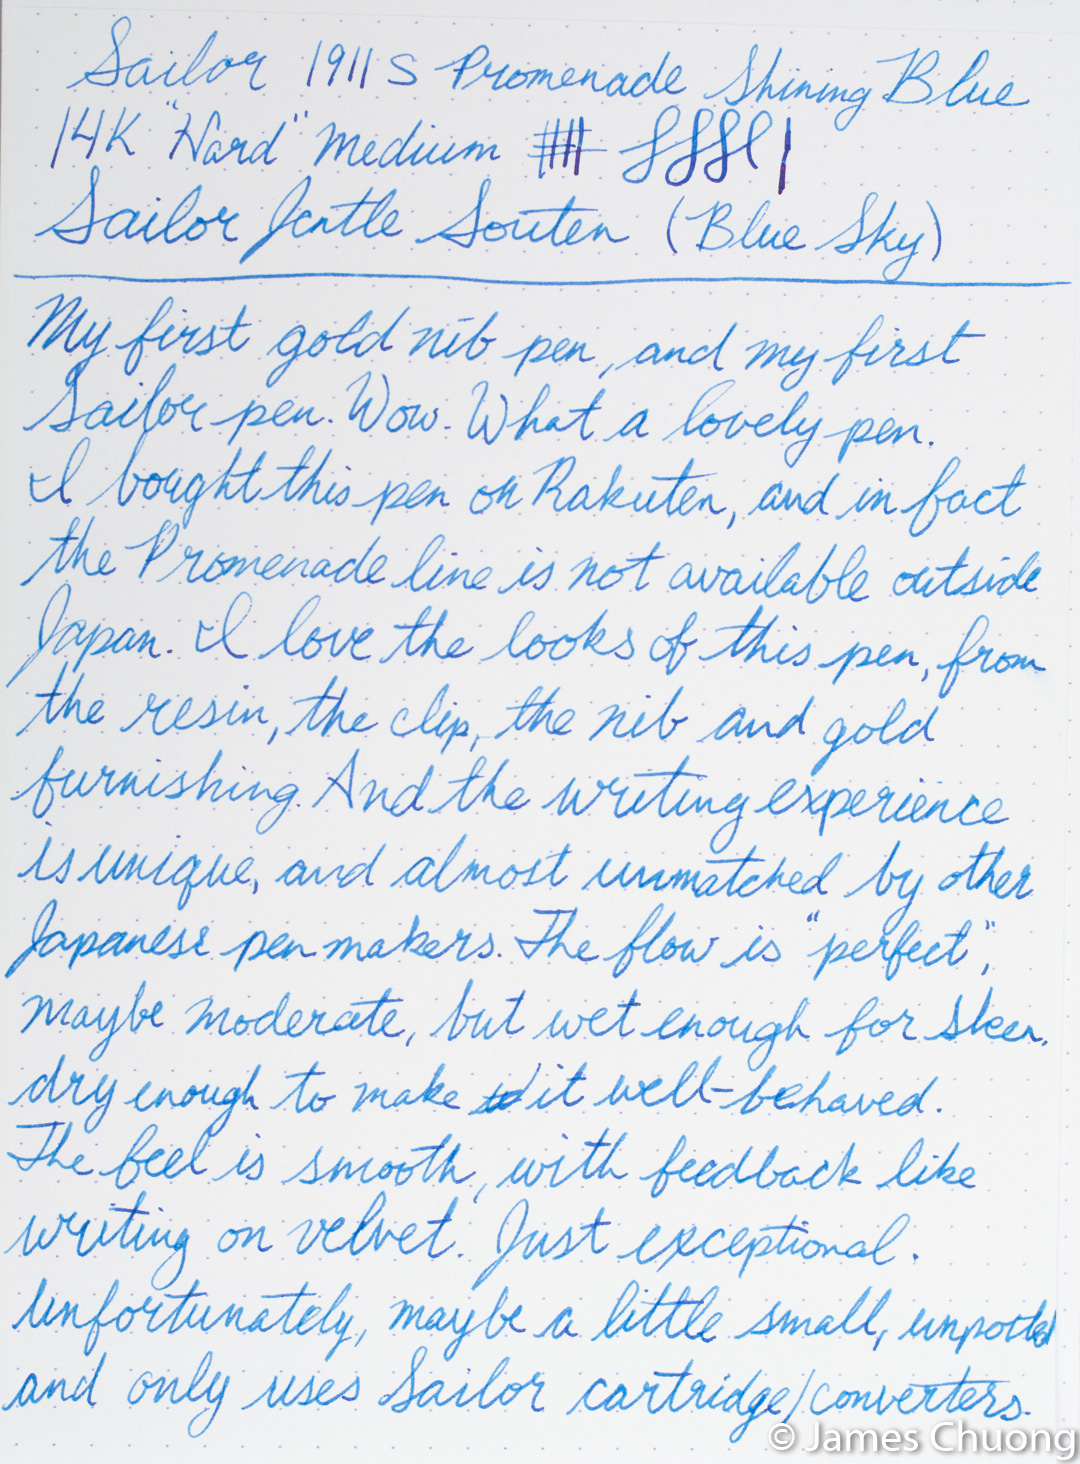 Sailor 1911 S Promenade Shining Blue
14K "Hard" Medium
Sailor Jentle Souten (Blue Sky)
My first gold nib pen, and my first
Sailor pen. Wow. What a lovely pen.
I bought this pen on Rakuten, and in fact
the Promenade line is not available outside
Japan. I love the looks of this pen, from
the resin, the clip, the nib and gold
furnishing. And the writing experience
is unique, and almost unmatched by other
Japanese pen makers. The flow is "perfect",
maybe moderate, but wet enough for sheen,
dry enough to make it well-behaved.
The feel is smooth, with feedback like
writing on velvet. Just exceptional.
Unfortunately, maybe a little small, unposted
and only uses Sailor cartridge/converters.
© James Chuong